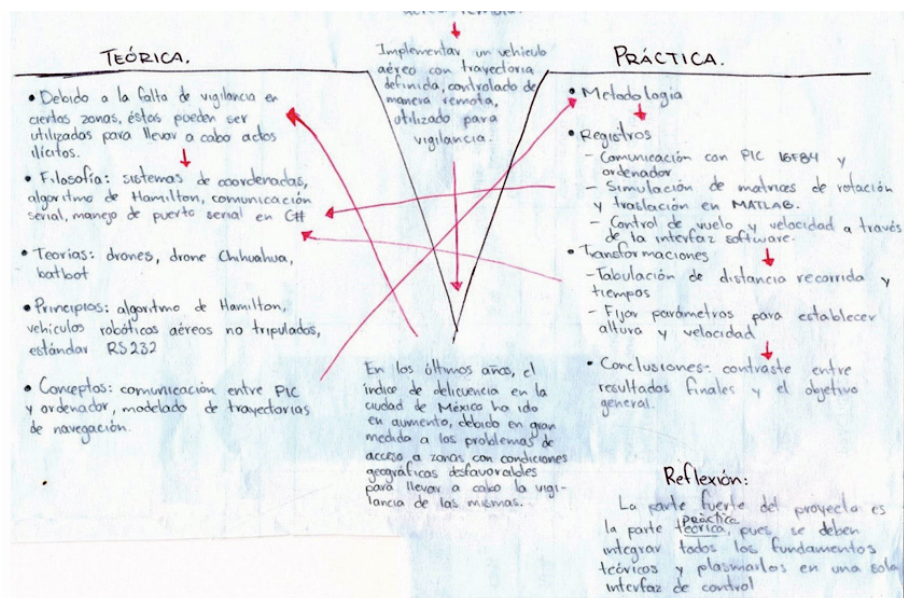 TEÓRICA.
• Debido a la falta de vigilancia en
ciertas zonas, éstas pueden ser
utilizadas para llevar a cabo actos
ilícitos.
• Filosofía: sistemas de coordenadas,
algoritmo de Hamilton, comunicación
serial, manejo de puerto serial en C#
• Teorías: drones, drone Chihuahua,
batbot
• Principios: algoritmo de Hamilton,
vehículos robóticos aéreos no tripulados,
estándar RS232
• Conceptos: comunicación entre PIC
y ordenador, modelado de trayectorias
de navegación.
Implementar un vehículo
aéreo con trayectoria
definida, controlado de
manera remota,
utilizado para
vigilancia.
En los últimos años, el
índice de delicuencia en la
ciudad de México ha ido
en aumento, debido en gran
medida a los problemas de
acceso a zonas con condiciones
geográficas desfavorables
para llevar a cabo la vigi-
lancia de las mismas.
PRÁCTICA.
• Metodología
• Registros
- Comunicación con PIC 16F84 y
ordenador.
- Simulación de matrices de rotación
y traslación en MATLAB.
- Control de vuelo y velocidad a través
de la interfaz software.
• Transformaciones
- Tabulación de distancia recorrida y
tiempos
- Fijar parámetros para establecer
altura y velocidad
• Conclusiones: contraste entre
resultados finales y el objetivo
general.
Reflexión:
La parte fuerte del proyecto es
práctica
la parte teórica, pues se deben
integrar todos los fundamentos
teóricos y plasmarlos en una sola
interfaz de control